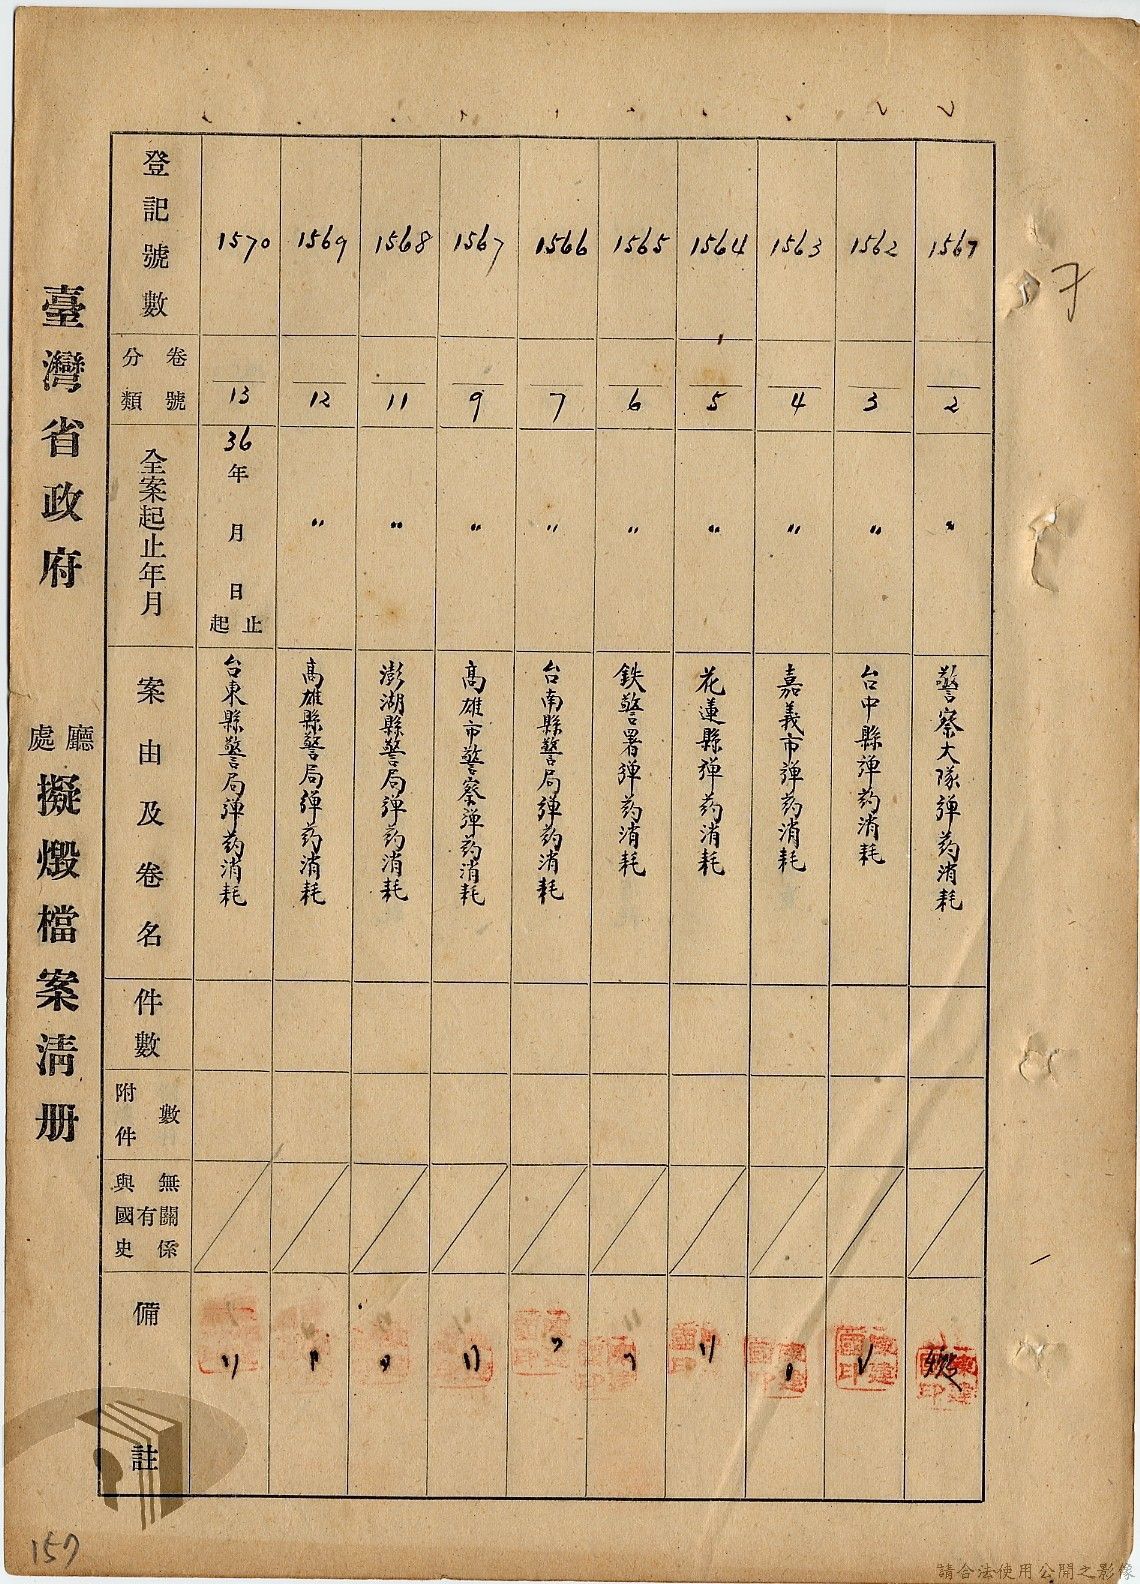 臺灣省政府 廳處 擬燬檔案清册
登記號數
分類 卷號
全案起止年月
案由及卷名
件數
附件數
與國史有無關係
備註
1570
13
36年 月 日起止
台東縣警局弹药消耗
1569
12
"
高雄縣警局弹药消耗
1568
11
"
澎湖縣警局弹药消耗
1567
9
"
高雄市警察弹药消耗
1566
7
"
台南縣警局弹药消耗
1565
6
"
鉄警署弹药消耗
1564
5
"
花蓮縣弹药消耗
1563
4
"
嘉義市弹药消耗
1562
3
"
台中縣弹药消耗
2
"
警察大隊弹药消耗
157
請合法使用公開之影像